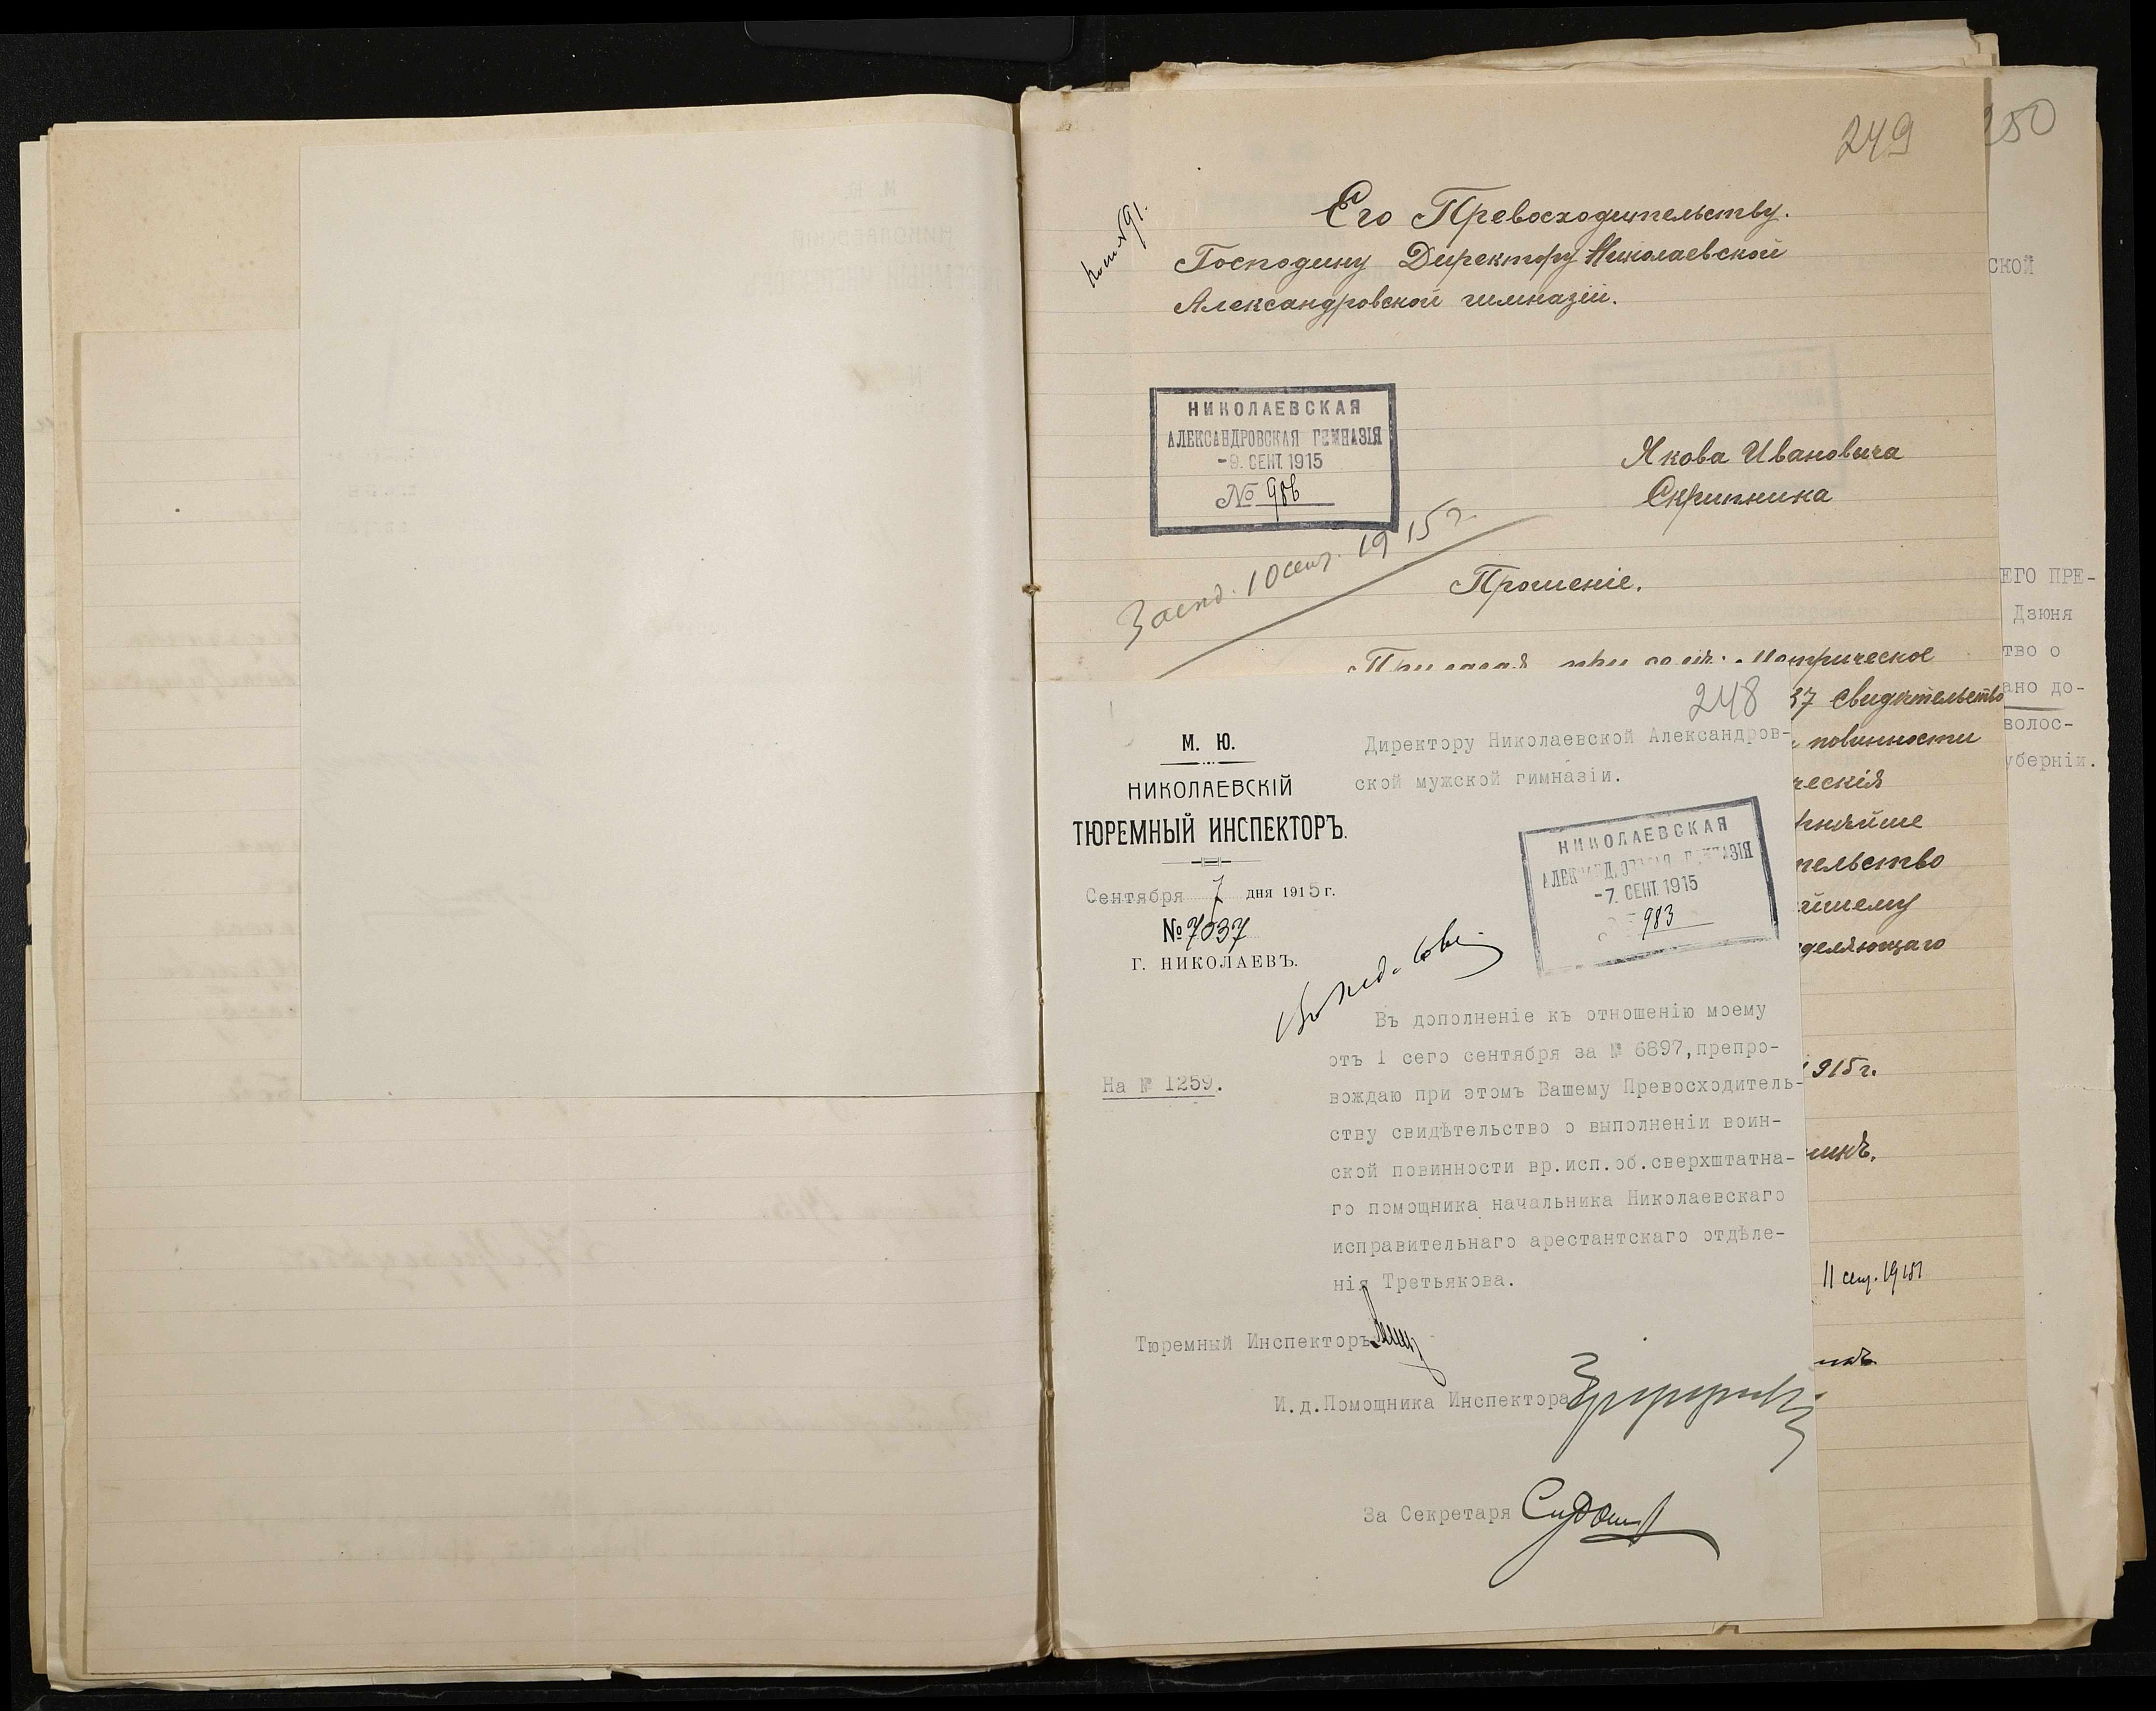 249
250
Его Превосходительству.
Господину Директору Николаевской
Александровской гимназіи.
НИКОЛАЕВСКАЯ
АЛЕКСАНДРОВСКАЯ ГИМНАЗІЯ
-9. СЕНТ. 1915
№ 986
Якова Ивановича
Скрипкина
10 сент. 1915 г.
Прошеніе.
Прилагая при семъ: Метрическое
37 свидѣтельство
повинности
ческія
тельство
дѣляющаго
1915 г.
11 сент. 1915
ской
ЕГО ПРЕ-
Дзюня
тво о
ано до-
волос-
уберніи.
248
М. Ю.
НИКОЛАЕВСКІЙ
ТЮРЕМНЫЙ ИНСПЕКТОРЪ.
Сентября 7 дня 1915 г.
№ 7037
Г. НИКОЛАЕВЪ.
На № 1259.
Директору Николаевской Александров-
ской мужской гимназіи.
НИКОЛАЕВСКАЯ
АЛЕКСАНДРОВСКАЯ ГИМНАЗІЯ
-7. СЕНТ. 1915
983
Въ дополненіе къ отношенію моему
отъ 1 сего сентября за № 6897, препро-
вождаю при этомъ Вашему Превосходитель-
ству свидѣтельство о выполненіи воин-
ской повинности вр.исп.об.сверхштатна-
го помощника начальника Николаевскаго
исправительнаго арестантскаго отдѣле-
нія Третьякова.
Тюремный Инспекторъ
И.д.Помощника Инспектора
За Секретаря